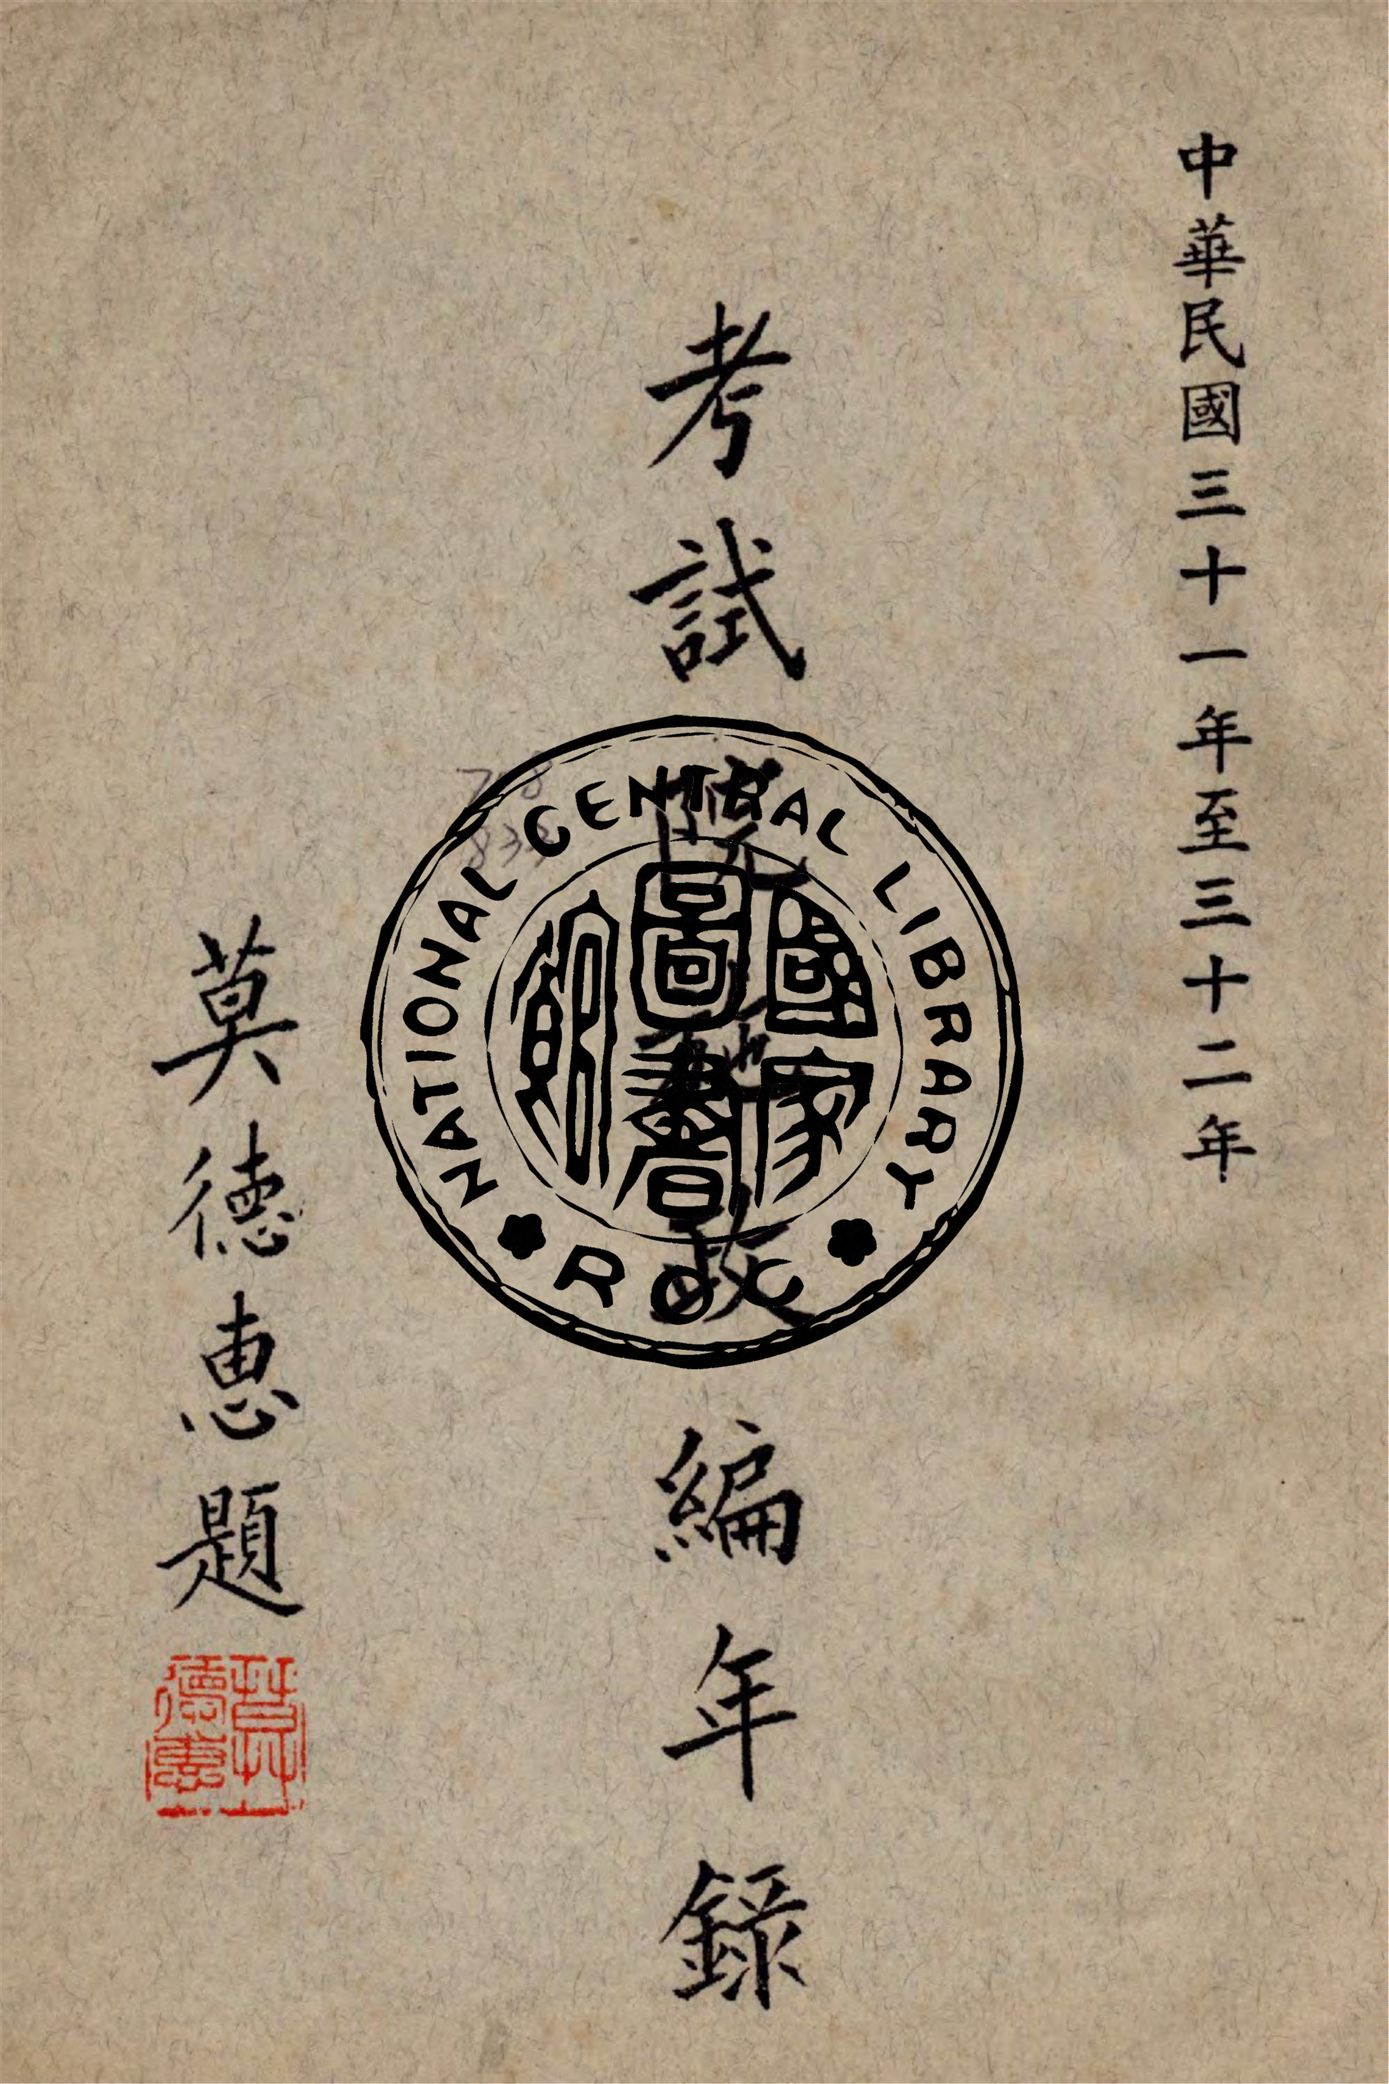 中華民國三十一年至三十二年
考試院施政編年錄
莫德惠題
莫德惠
NATIONAL CENTRAL LIBRARY
ROC
國家圖書館